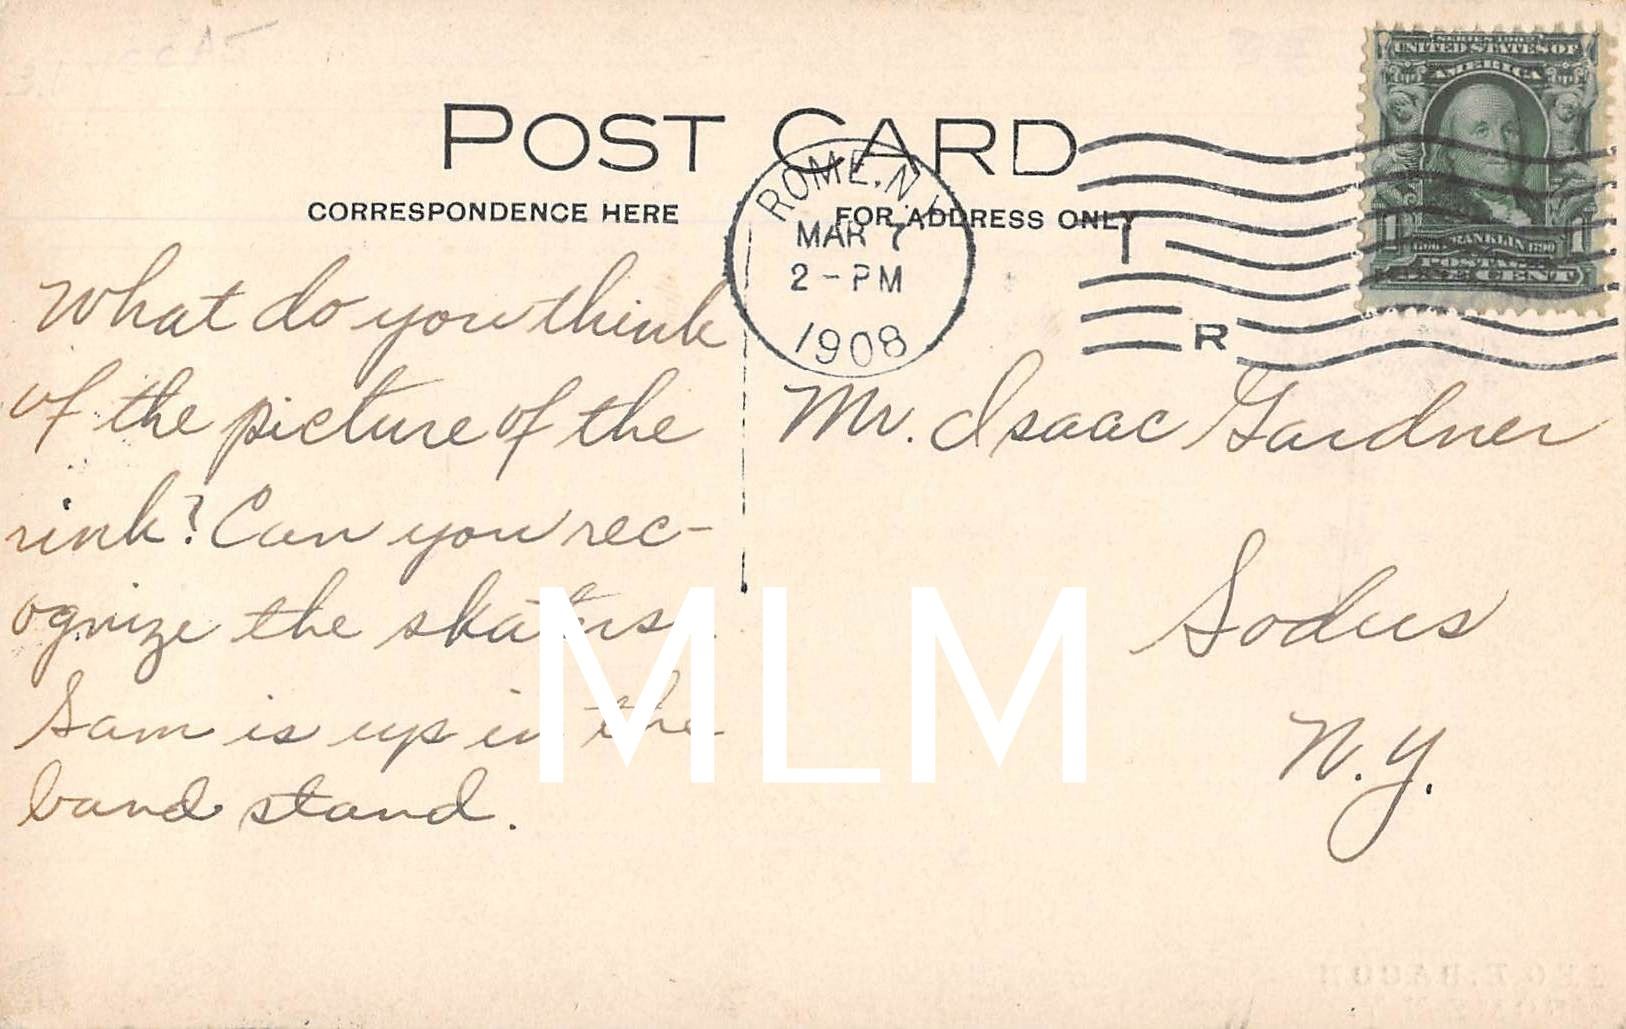 POST CARD
CORRESPONDENCE HERE
FOR ADDRESS ONLY
ROME, N.
MAR 7
2 - PM
1908
R
SERIES 1902
UNITED STATES OF
AMERICA
1 FRANKLIN 1
POSTAGE
ONE CENT
What do you think
of the picture of the
rink? Can you rec-
ognize the skaters.
Sam is up in the
band stand.
Mr. Isaac Gardner
Sodus
N. Y.
MLM